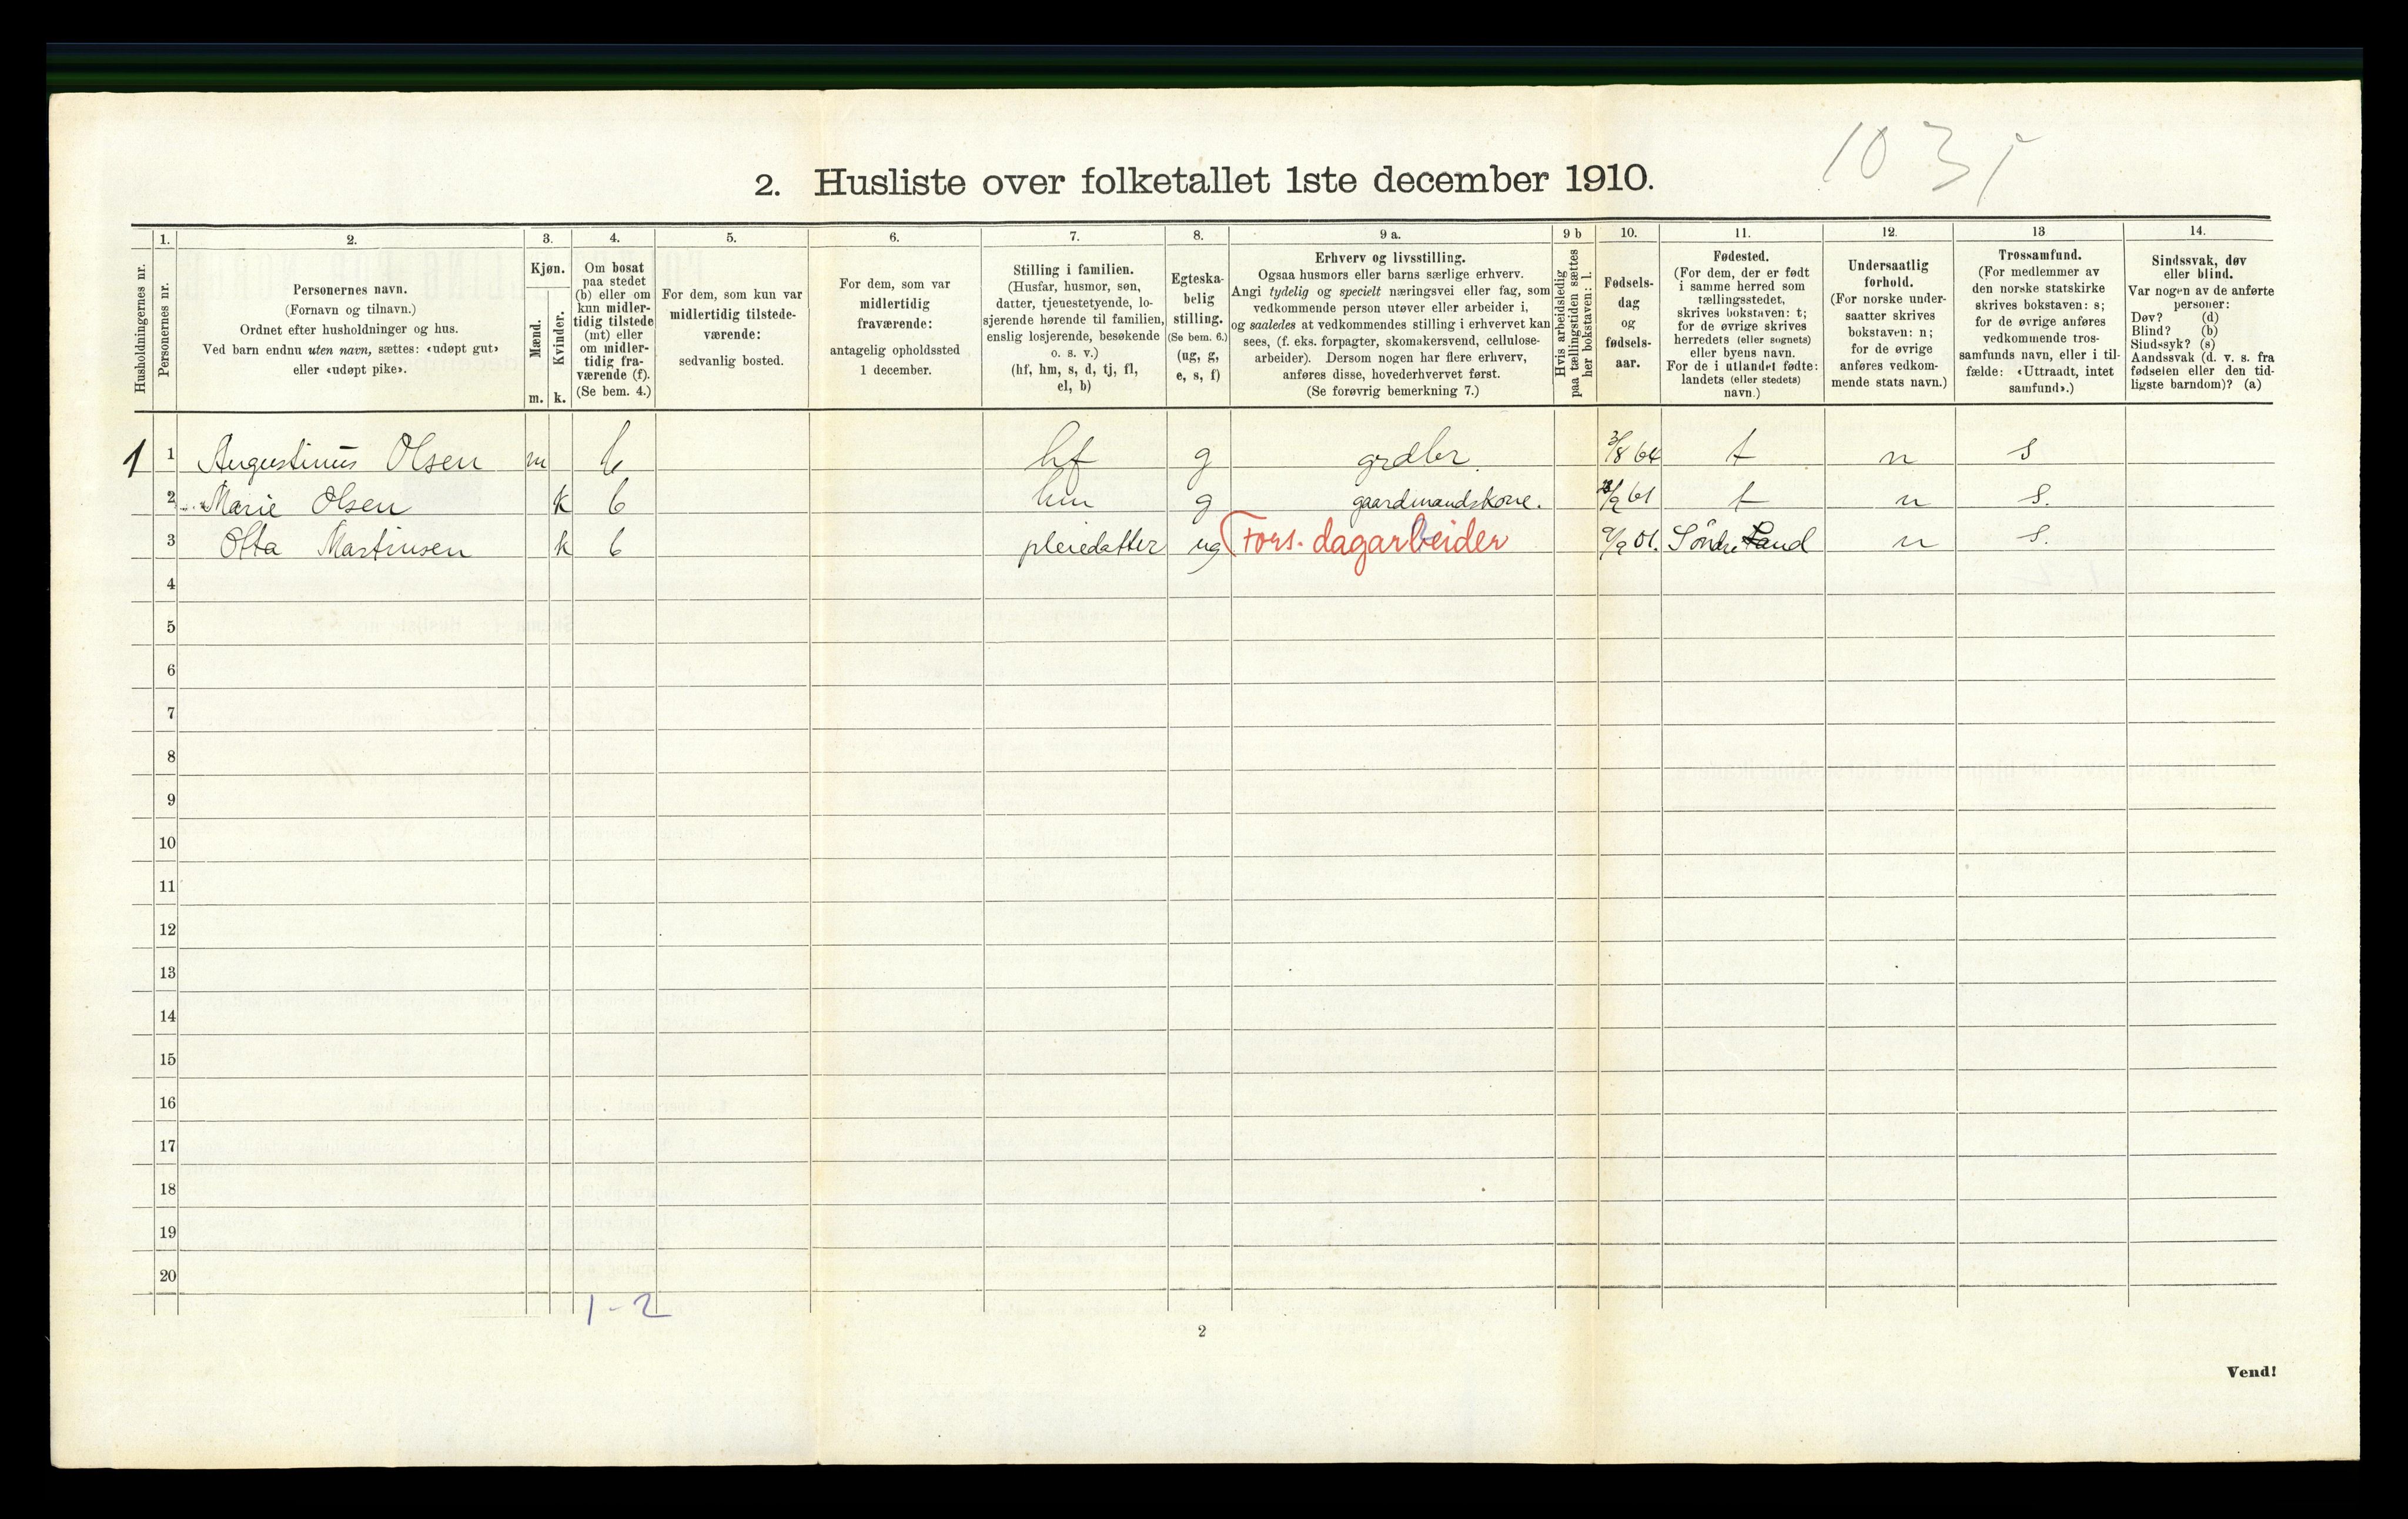 103
2. Husliste over folketallet 1ste december 1910.
Husholdningernes nr.
1.
Personernes nr.
2.
Personernes navn.
(Fornavn og tilnavn.)
Ordnet efter husholdninger og hus.
Ved barn endnu uten navn, sættes: «udøpt gut»
eller «udøpt pike».
3.
Kjøn.
Mænd.
Kvinder.
m. k.
4.
Om bosat
paa stedet
(b) eller om
kun midler-
tidig tilstede
(mt) eller
om midler-
tidig fra-
værende (f).
(Se bem. 4.)
5.
For dem, som kun var
midlertidig tilstede-
værende:
sedvanlig bosted.
6.
For dem, som var
midlertidig
fraværende:
antagelig opholdssted
1 december.
7.
Stilling i familien.
(Husfar, husmor, søn,
datter, tjenestetyende, lo-
sjerende hørende til familien,
enslig losjerende, besøkende
o. s. v.)
(hf, hm, s, d, tj, fl,
el, b)
8.
Egteska-
belig
stilling.
(Se bem. 6.)
(ug, g,
e, s, f)
9 a.
Erhverv og livsstilling.
Ogsaa husmors eller barns særlige erhverv.
Angi tydelig og specielt næringsvei eller fag, som
vedkommende person utøver eller arbeider i,
og saaledes at vedkommendes stilling i erhvervet kan
sees, (f. eks. forpagter, skomakersvend, cellulose-
arbeider). Dersom nogen har flere erhverv,
anføres disse, hovederhvervet først.
(Se forøvrig bemerkning 7.)
9 b
Hvis arbeidsledig
paa tællingstiden sættes
her bokstaven: l.
10.
Fødsels-
dag
og
fødsels-
aar.
11.
Fødested.
(For dem, der er født
i samme herred som
tællingsstedet,
skrives bokstaven: t;
for de øvrige skrives
herredets (eller sognets)
eller byens navn.
For de i utlandet fødte:
landets (eller stedets)
navn.)
12.
Undersaatlig
forhold.
(For norske under-
saatter skrives
bokstaven: n;
for de øvrige
anføres vedkom-
mende stats navn.)
13
Trossamfund.
(For medlemmer av
den norske statskirke
skrives bokstaven: s;
for de øvrige anføres
vedkommende tros-
samfunds navn, eller i til-
fælde: «Uttraadt, intet
samfund».)
14.
Sindssvak, døv
eller blind.
Var nogen av de anførte
personer:
Døv? (d)
Blind? (b)
Sindssyk? (s)
Aandssvak (d. v. s. fra
fødselen eller den tid-
ligste barndom)? (a)
1 1 Augustinus Olsen m b hf g grdbr. 3/8 64 t n s
2 Marie Olsen k b hm g gaardmandskone. /9 61 t n s.
3 Otta Martinsen k b pleiedatter ug Fors. dagarbeider /9 01. Søndre Land n s.
4
5
6
7
8
9
10
11
12
13
14
15
16
17
18
19
20
1-2
2
Vend!